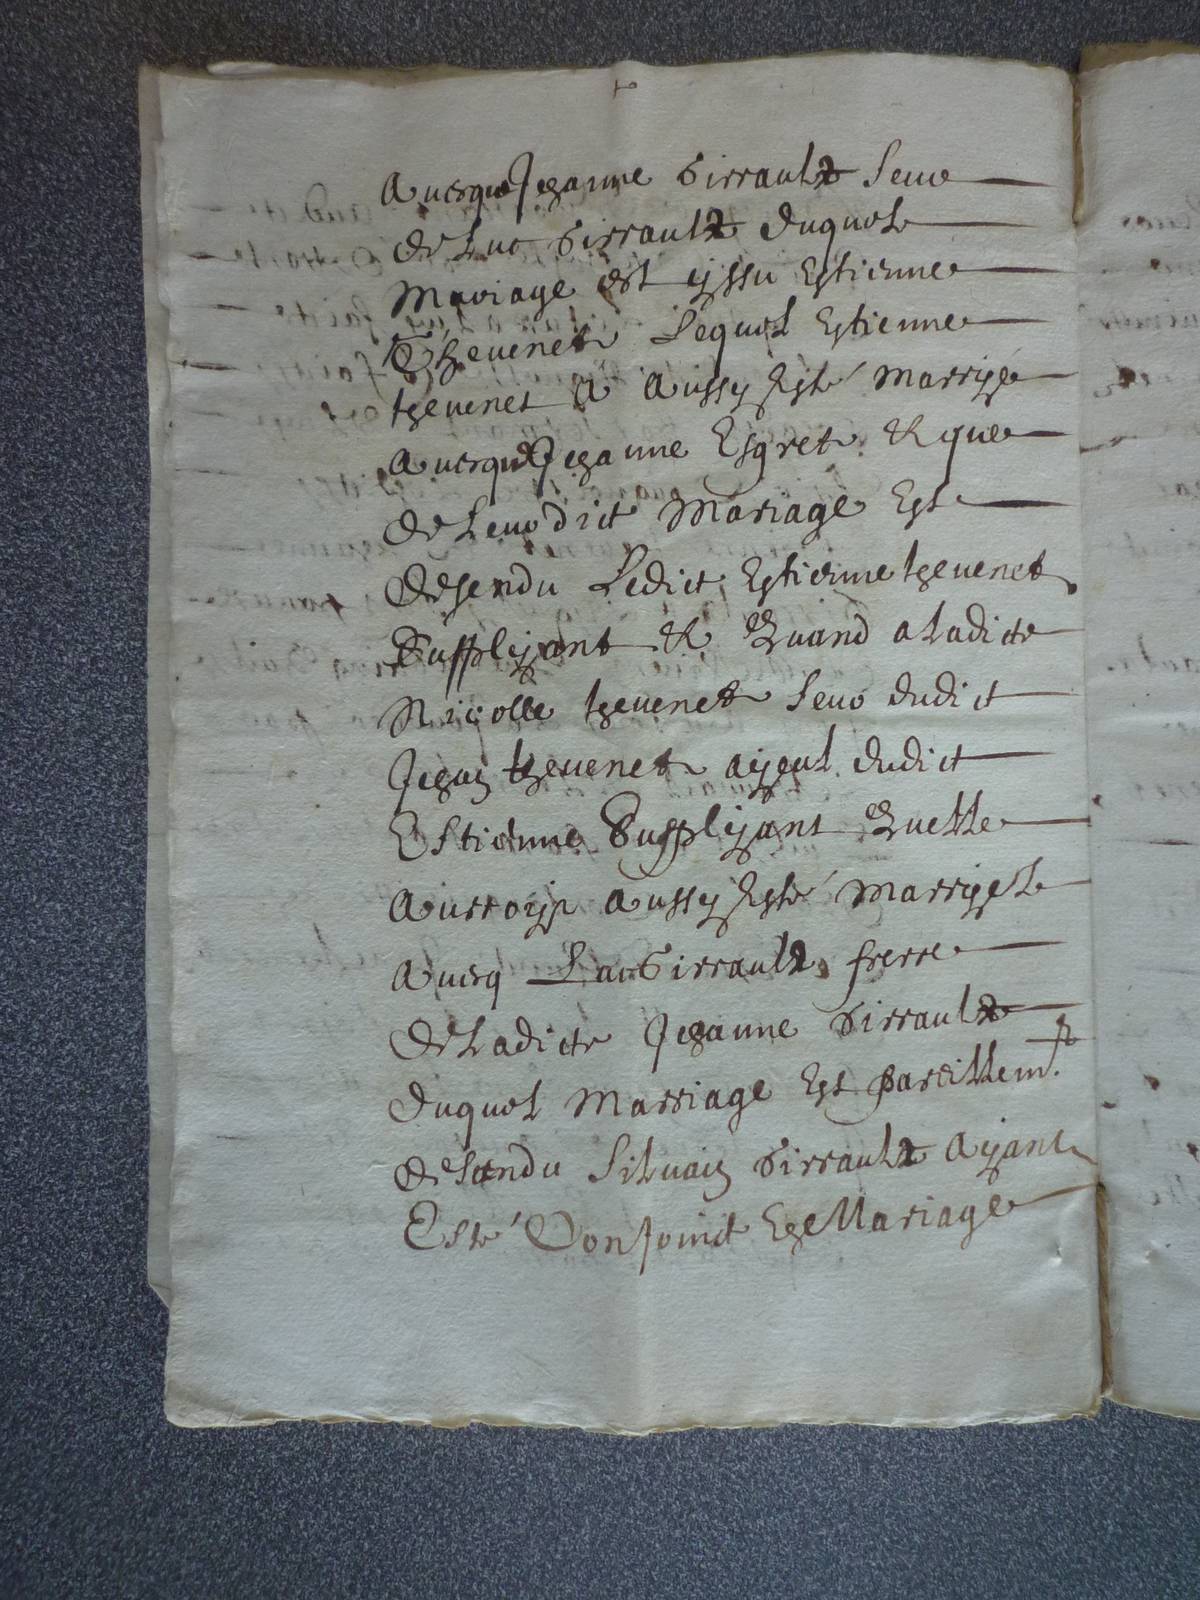 Avecque Jehanne Girrault seur
de Luc Girrault duquel
Mariage est yssu Estienne
Thevenet Lequel Estienne
thevenet A Aussy Esté Marryé
Avecque Jehanne Esgret & que
de Leur dict Mariage Est
desendu Ledict Estienne thevenet
Supplyant & Quand a Ladicte
Nicolle thevenet seur dudict
Jehan thevenet ayeul dudict
Estienne Supplyant Quelle
Auroyt Aussy Esté Marryée
Avecq Luc Girrault frerre
de Ladicte Jehanne Girrault
duquel Marriage Est pareillemt
desendu Silvain Girrault Ayant
Esté Conjoinct En Mariage